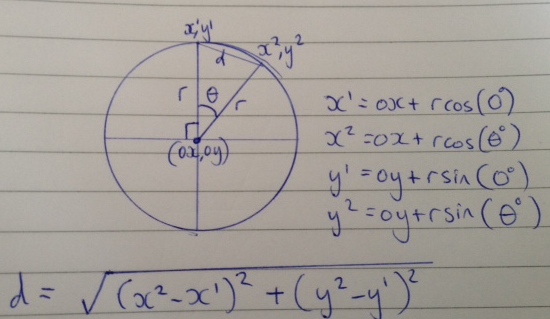 x¹,y¹
x²,y²
d
r θ r
(ox,oy)
x¹=ox+rcos(0°)
x²=ox+rcos(θ°)
y¹=oy+rsin(0°)
y²=oy+rsin(θ°)
d = √(x²-x¹)² + (y²-y¹)²